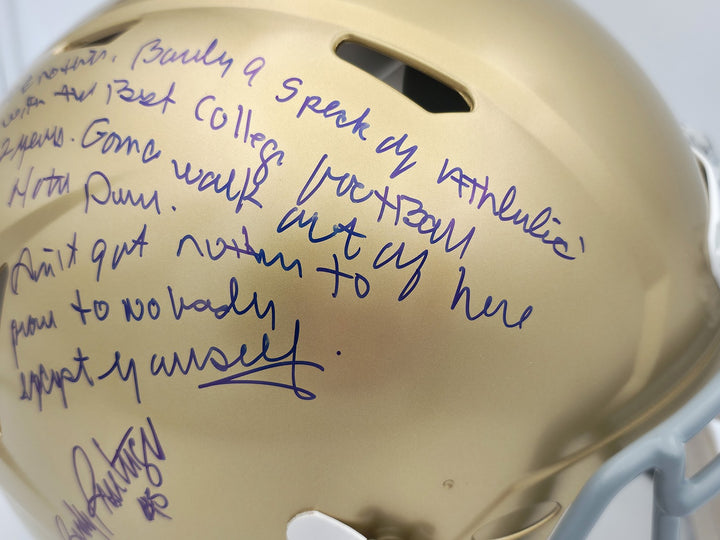 nothin. Barely a speck of Athletic
with the Best College football
2 years. Gonna walk out of here
Notre Dame.
Ain't got nothin to
prove to nobody
except yourself.
Rudy Ruettiger
45